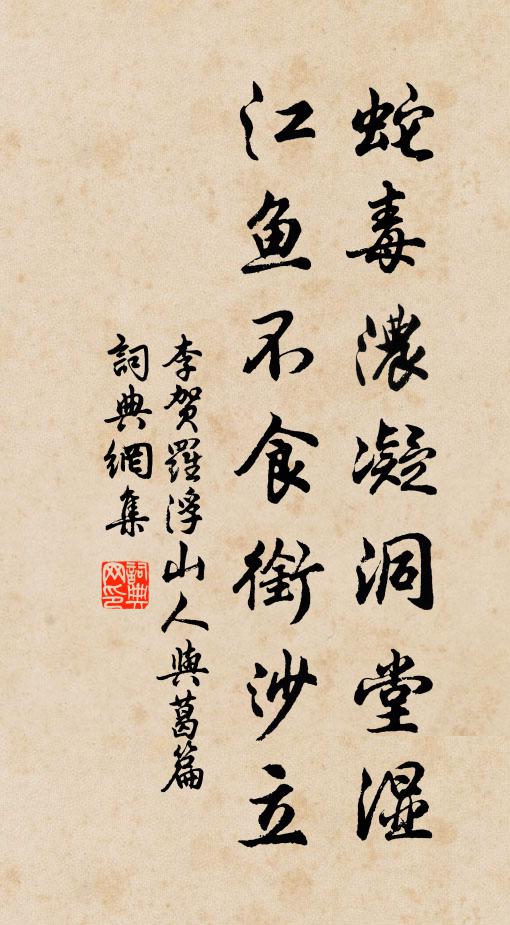 蛇毒濃凝洞堂湿
江鱼不食銜沙立
李贺羅浮山人與葛篇
詞典網集
詞典网印